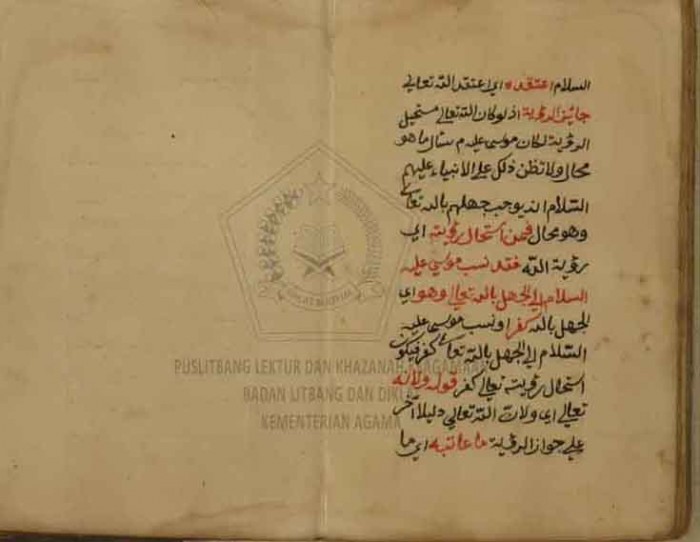 السلام اعتقد * اي اعتقد الله تعالى
جائز الرؤية اذ لو كان الله تعالى مستحيل
الرؤية لكان موسى عليه م سئال ما هو
محال ولا تظن ذلك على الانبياء عليهم
السلام اذ يوجب جهلهم بالله تعالى
وهو محال فمن استحال رؤيته اي
رؤية الله فقد نسب موسى عليه
السلام الى الجهل بالله تعالى وهو اي
الجهل بالله كفر او نسب موسى عليه
السلام الى الجهل بالله تعالى كفر فيكون
استحال رؤيته تعالى كفر قوله ولانه
تعالى اي ولان الله تعالى دليلا آخر
على جواز الرؤية ما عاتبه اي ما
PUSLITBANG LEKTUR DAN KHAZANAH KEAGAMAAN
BADAN LITBANG DAN DIKLAT
KEMENTERIAN AGAMA